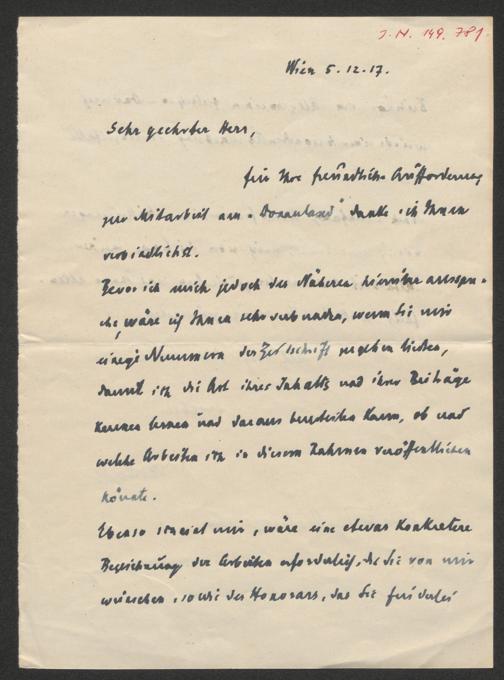 J. N. 149.781
Wien 5.12.17.
Sehr geehrter Herr,
für Ihre freundliche Aufforderung
zur Mitarbeit am „Donauland" danke ich Ihnen
verbindlichst.
Bevor ich mich jedoch des Näheren hierüber ausspre-
che, wäre ich Ihnen sehr verbunden, wenn Sie mir
einige Nummern der Zeitschrift zugehen ließen,
damit ich die Art ihres Inhalts und ihrer Beiträge
kennen lernen und daraus beurteilen kann, ob und
welche Arbeiten ich in diesem Rahmen veröffentlichen
könnte.
Ebenso scheint mir, wäre eine etwas konkretere
Bezeichnung der Arbeiten erforderlich, die Sie von mir
wünschen, sowie des Honorars, das Sie für derlei